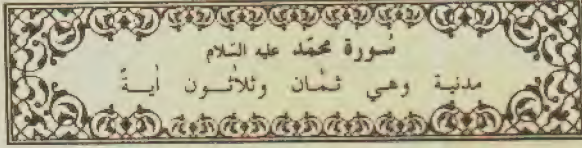 سورة محمّد عليه السّلام
مدنية وهي ثمان وثلاثون أية